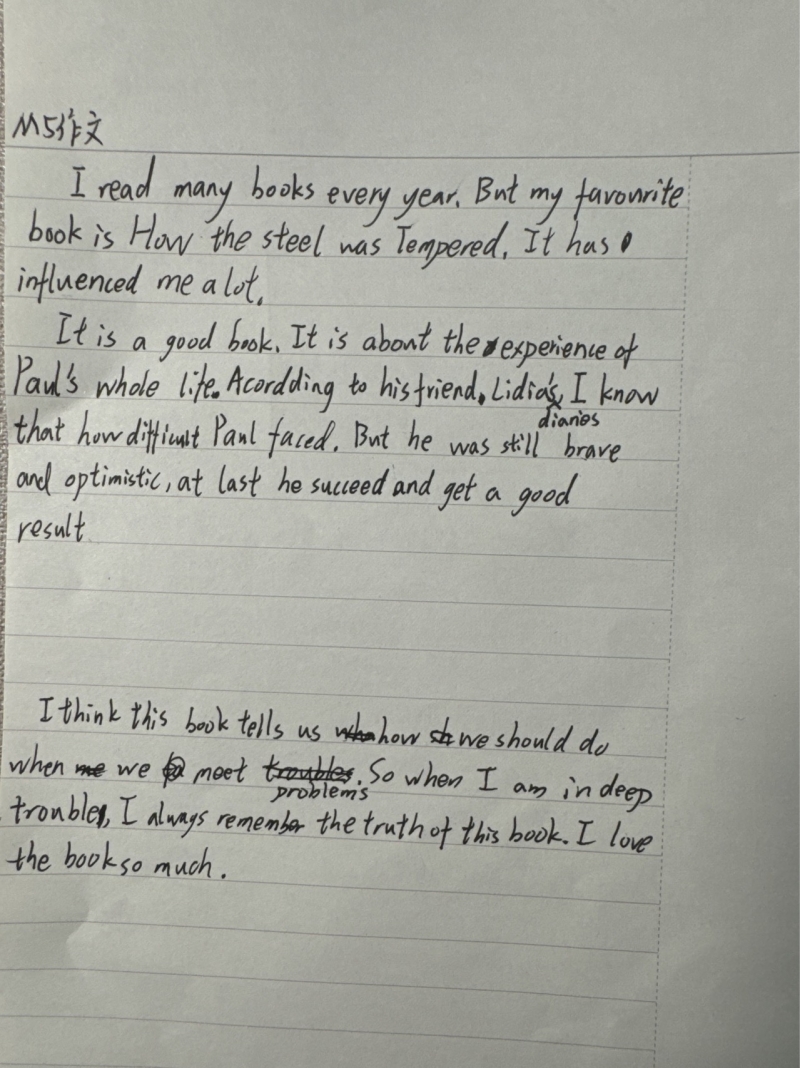 M5作文
I read many books every year. But my favourite
book is How the steel was Tempered. It has
influenced me a lot.
It is a good book. It is about the experience of
Paul's whole life. Acordding to his friend, Lidia's diaries, I know
that how difficult Paul faced. But he was still brave
and optimistic, at last he succeed and get a good
result
I think this book tells us how we should do
when we meet problems. So when I am in deep
trouble, I always remember the truth of this book. I love
the book so much.